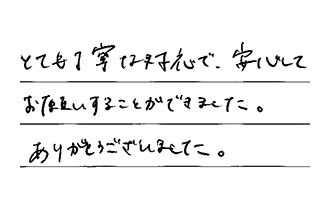 とても丁寧な対応で、安心して
お願いすることができました。
ありがとうございました。